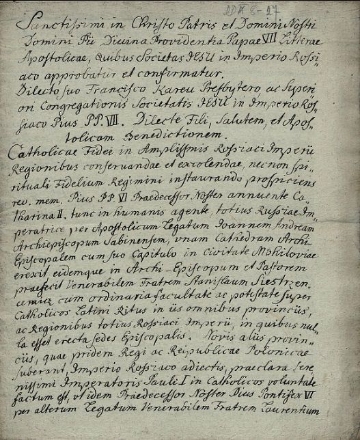 Sanctissimi in Christo Patris et Domini Nostri
Domini Pii Divina Providentia Papae VII Litterae
Apostolicae, Quibus Societas IESU in Imperio Rossi-
aco approbatur et confirmatur.
Dilecto suo Francisco Kareu Presbytero, ac Superi-
ori Congregationis Societatis IESU in Imperio Ros-
siaco Pius P.P. VII. Dilecte Fili, Salutem, et Apos-
tolicam Benedictionem.
Catholicae Fidei in Amplissimis Rossiaci Imperii
Regionibus conservandae et excolendae, nec non spi-
rituali Fidelium Regimini instaurando prospiciens
rec. mem. Pius P.P. VI Praedecessor Noster annuente Ca-
tharina II, tunc in humanis agente, totius Russiae Im-
peratrice per Apostolicum Legatum Joannem Andream
Archiepiscopum unam Cathedram Archi-
Episcopalem cum suo Capitulo in Civitate Mohiloviae
erexit, eidemque in Archi-Episcopum et Pastorem
praefecit Venerabilem Fratrem Stanislaum Siestrzen-
cum ordinaria facultate ac potestate super
Catholicos Latini Ritus in iis omnibus provinciis,
ac Regionibus totius Rossiaci Imperii, in quibus nul-
la esset erecta sedes Episcopalis. Novis aliis provin-
ciis, quae pridem Regi ac Reipublicae Polonicae
suberant, Imperio Rossiaco adiectis, praeclara Sere-
nissimi Imperatoris Pauli I in Catholicos voluntate
factum est, ut idem Praedecessor Noster Pius Pontifex VI
per alterum Legatum Venerabilem Fratrem Laurentium